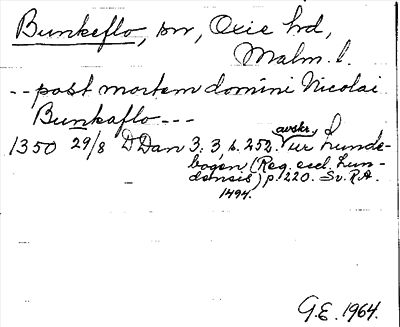 Bunkeflo, sn, Oxie hd,
Malm. l.
-- post mortem domini Nicolai
Bunkaflo ---
1350 29/8 DDan 3:3, s. 252. avskr. i ur Lunde-
bogen (Reg. eccl. Lun-
densis) p. 220. Sv. R.A.
1494.
G.E. 1964.